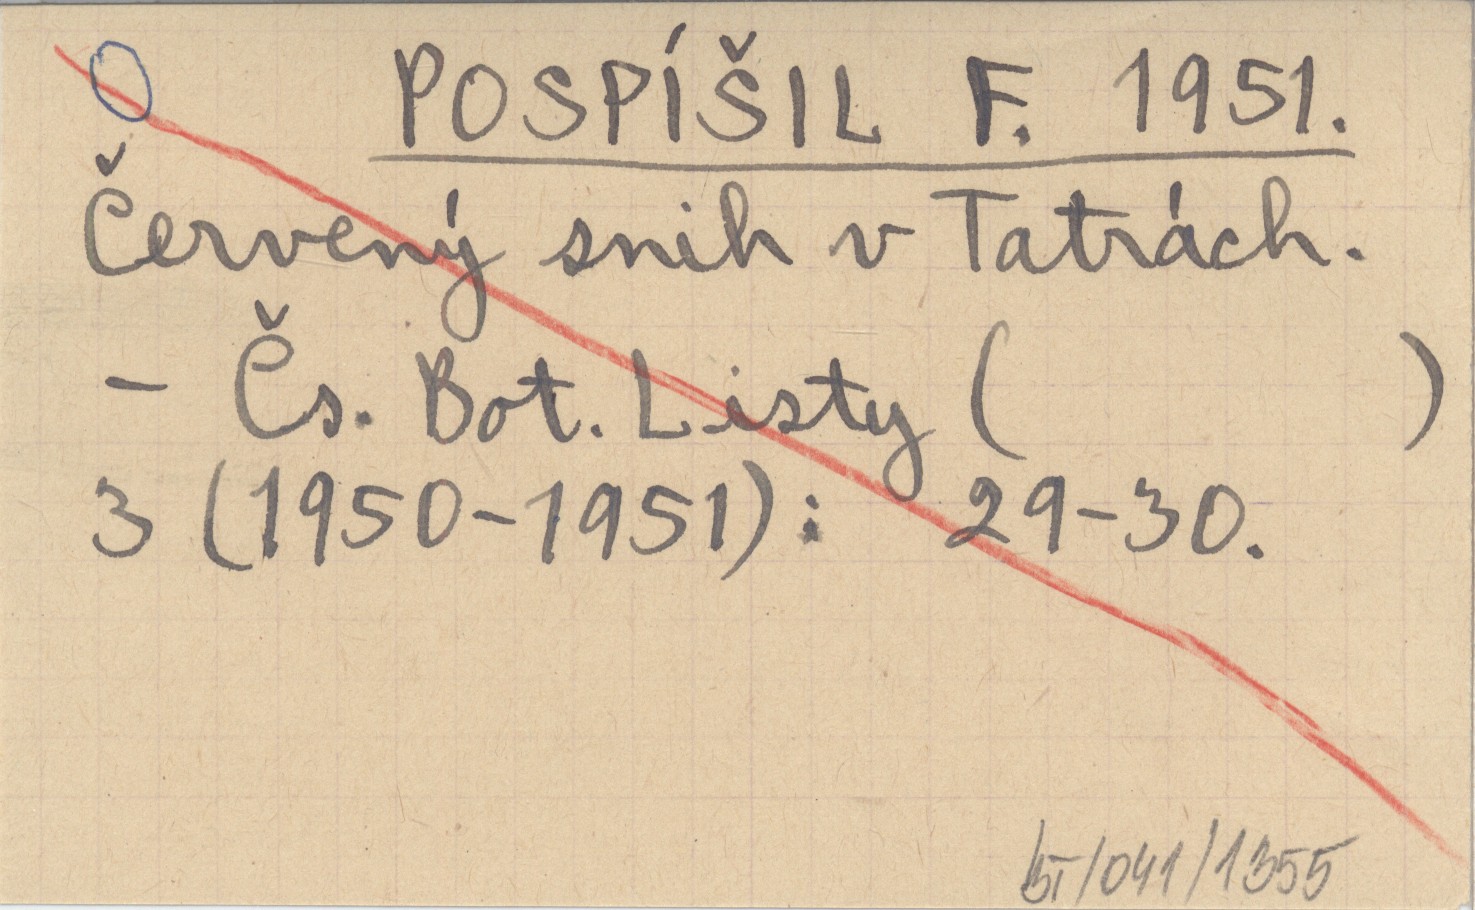 POSPÍŠIL F. 1951.
Červený snih v Tatrách.
- Čs. Bot. Listy ( )
3 (1950-1951): 29-30.
/041/1355